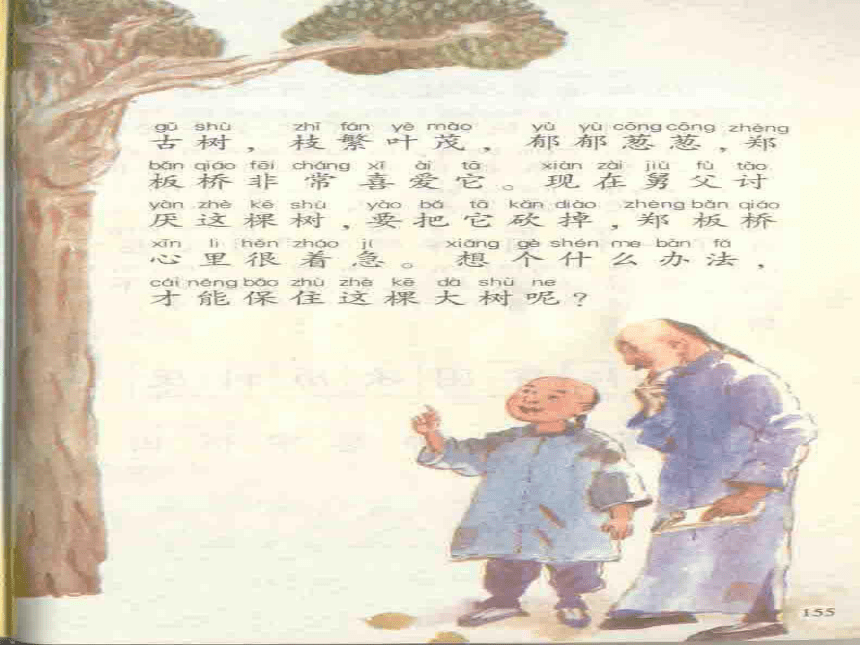 gǔ shù zhī fán yè mào yù yù cōng cōng zhèng
古树，枝繁叶茂，郁郁葱葱，郑
bǎn qiáo fēi cháng xǐ ài tā xiàn zài jiù fù tǎo
板桥非常喜爱它。现在舅父讨
yàn zhè kē shù yào bǎ tā kǎn diào zhèng bǎn qiáo
厌这棵树，要把它砍掉，郑板桥
xīn li hěn zháo jí xiǎng gè shén me bàn fǎ
心里很着急。想个什么办法，
cái néng bǎo zhù zhè kē dà shù ne
才能保住这棵大树呢？
155